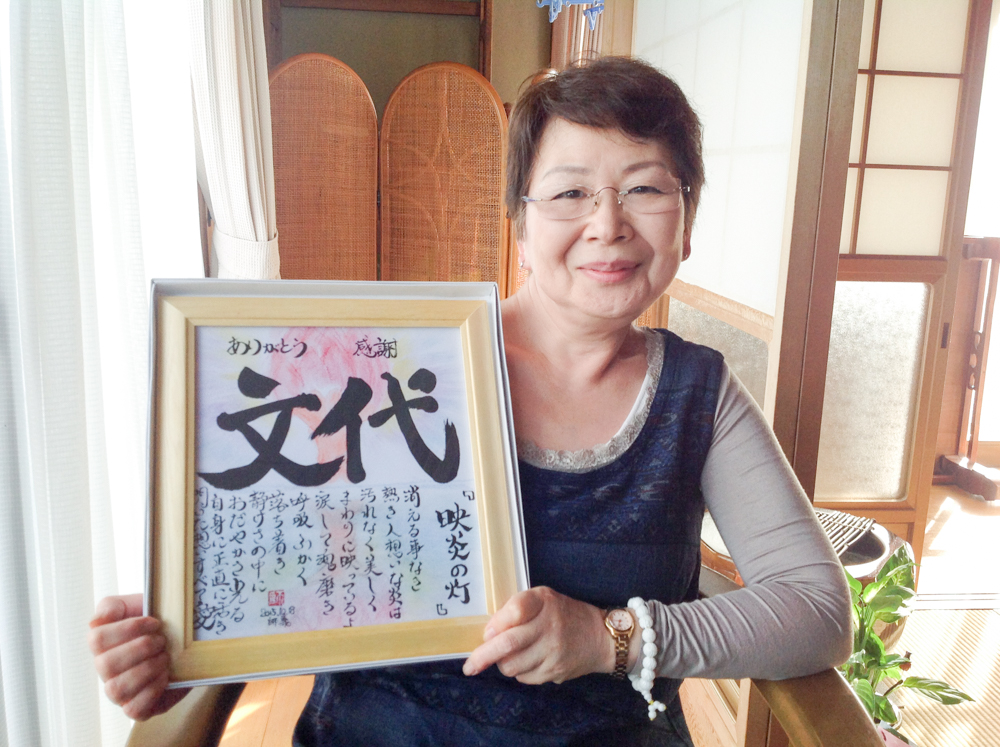 ありがとう　感謝
文代
『映炎の灯』
消える事なき
熱き人想いな炎は
汚れなく美しく
まわりに映っているよ
涙して魂磨き
呼吸ふかく
落ち着き
静けさの中に
おだやかさ光る
自身に正直に活き